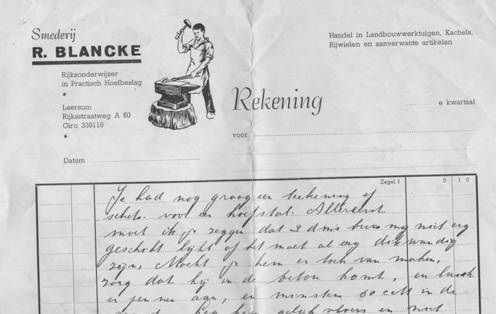 Smederij
R. BLANCKE
Rijksonderwijzer
in Practisch Hoefbeslag
*
Leersum
Rijksstraatweg A 60
Giro 339116
*
Datum
Handel in Landbouwwerktuigen, Kachels,
Rijwielen en aanverwante artikelen
Rekening
e kwartaal
voor
Zegel f 0 10
Je had nog graag een teekening of
schets voor een hoefstal. Allereerst
moet ik je zeggen dat 3 dms buis my niet erg
geschikt lijkt of het moet al erg dikwandig
zijn. Mocht je hem er toch van maken,
zorg dat hij in de beton komt, en
er pennen aan, en minstens 80 c.M in de
gelijk vloers en moet